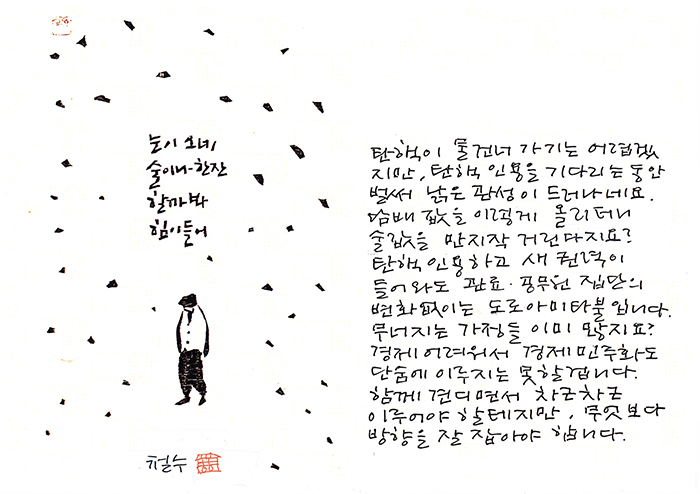 눈이 오네
술이나 한잔
할까봐
힘이들어
철수
탄핵이 물건너 가기는 어렵겠
지만, 탄핵 인용을 기다리는 동안
벌써 낡은 관성이 드러나네요.
담배 값을 이렇게 올리더니
술값을 만지작 거린다지요?
탄핵인용하고 새 권력이
들어와도 관료·공무원 집단의
변화없이는 도로아미타불입니다.
무너지는 가정들 이미 많지요?
경제 어려워서 경제민주화도
단숨에 이루지는 못할겁니다.
함께 견디면서 차근차근
이루어야 할테지만, 무엇보다
방향을 잘 잡아야 합니다.